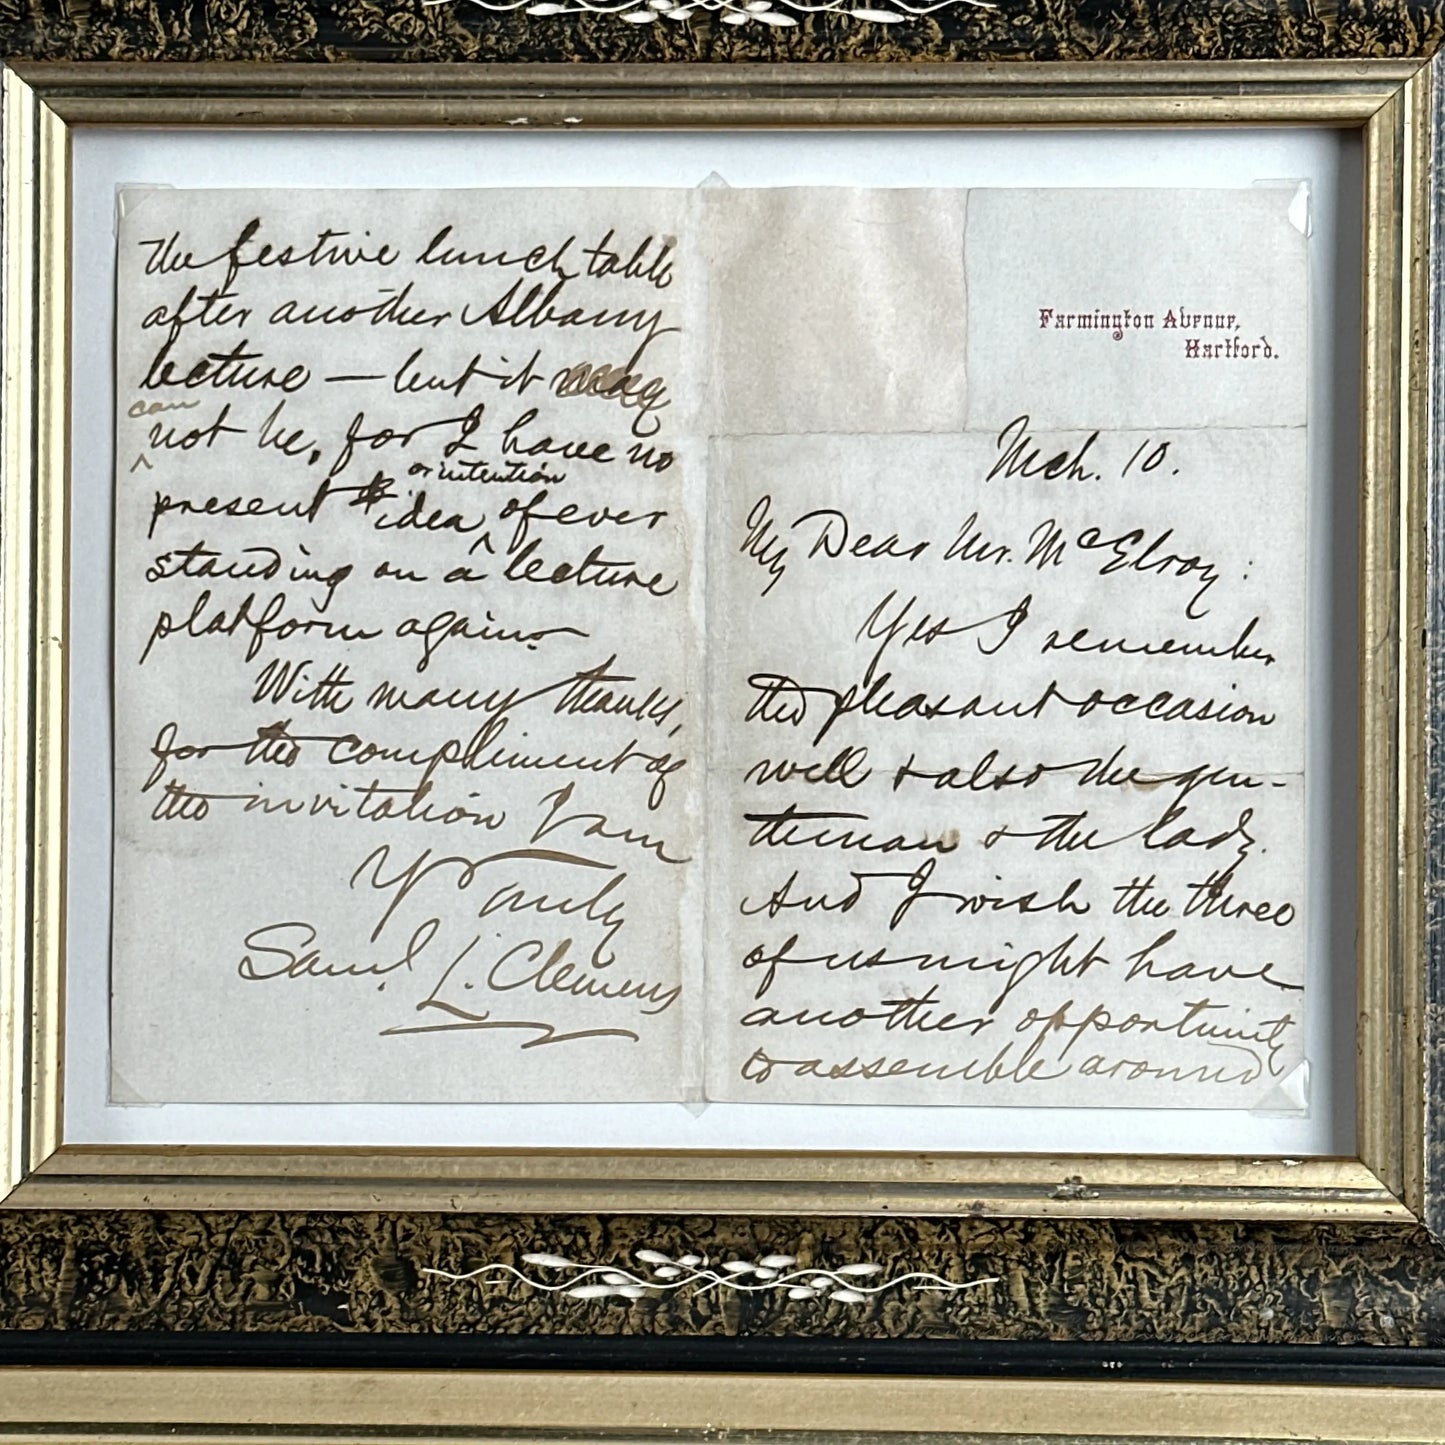 Farmington Avenue,
Hartford.
Mch. 10.
My Dear Mr. McElroy:
Yes I remember
the pleasant occasion
well & also the gen-
tleman & the lady.
And I wish the three
of us might have
another opportunity
to assemble around
the festive lunch table
after another Albany
lecture — but it may
can
not be, for I have no
or intention
present idea of ever
standing on a lecture
platform again.
With many thanks,
for the compliment of
the invitation I am
Yrs Truly
Saml. L. Clemens